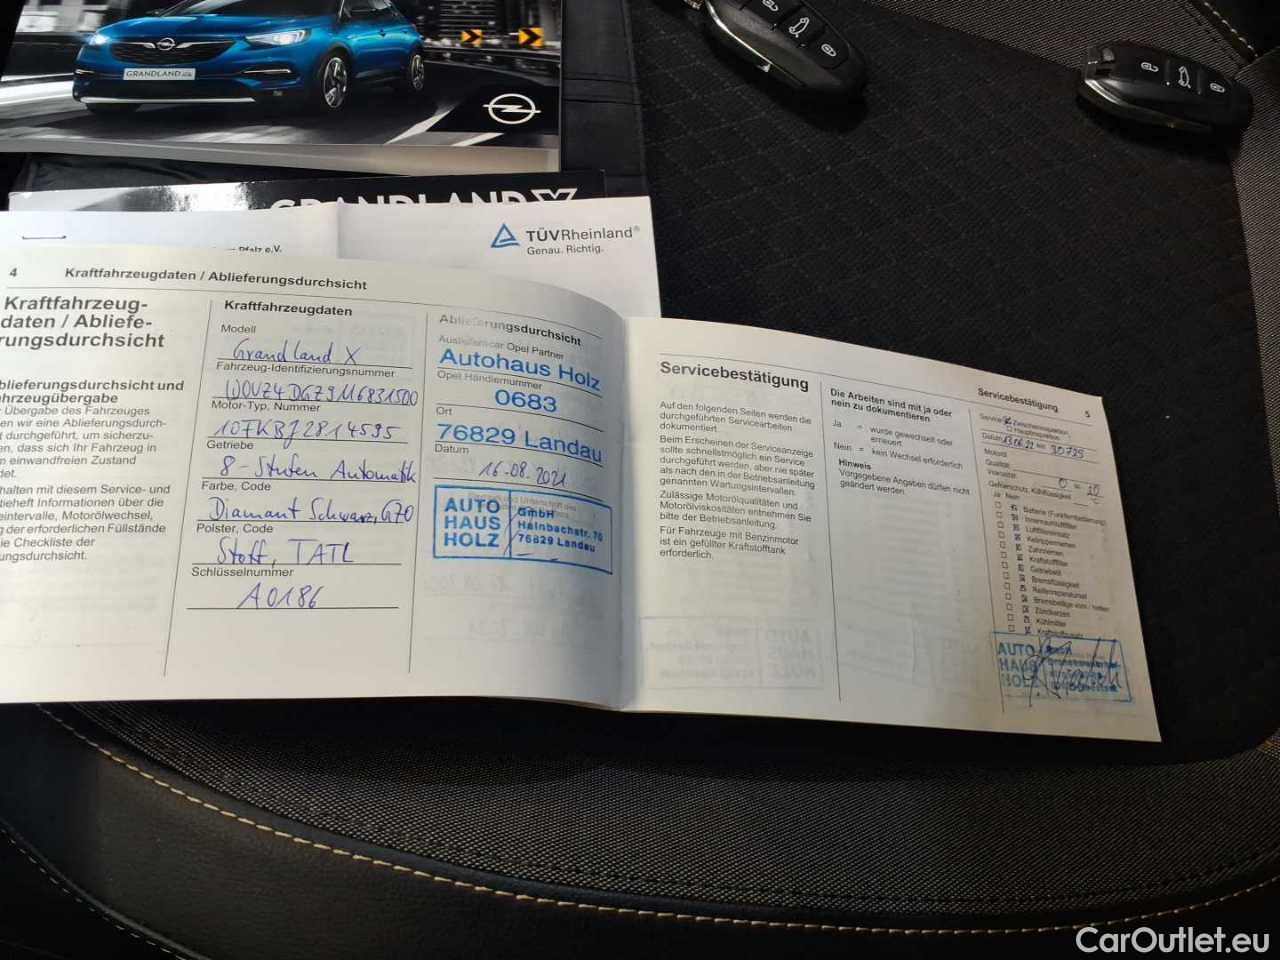 GRANDLAND X
GRANDLAND X
Pfalz e.V.
TÜVRheinland®
Genau. Richtig.
4 Kraftfahrzeugdaten / Ablieferungsdurchsicht
Kraftfahrzeug-
daten / Abliefe-
rungsdurchsicht
blieferungsdurchsicht und
hrzeugübergabe
Übergabe des Fahrzeuges
en wir eine Ablieferungsdurch-
t durchgeführt, um sicherzu-
en, dass sich Ihr Fahrzeug in
m einwandfreien Zustand
det.
halten mit diesem Service- und
tieheft Informationen über die
eintervalle, Motorölwechsel,
g der erforderlichen Füllstände
ie Checkliste der
ungsdurchsicht.
Kraftfahrzeugdaten
Modell
Grandland X
Fahrzeug-Identifizierungsnummer
W0VZ4DGZ9M6831500
Motor-Typ, Nummer
10FKBJ2814595
Getriebe
8-Stufen Automatik
Farbe, Code
Diamant Schwarz, G70
Polster, Code
Stoff, TATL
Schlüsselnummer
A0186
Ablieferungsdurchsicht
Ausliefernder Opel Partner
Autohaus Holz
Opel Händlernummer
0683
Ort
76829 Landau
Datum
16.08.2021
AUTO
HAUS
HOLZ
GmbH
Hainbachstr. 76
76829 Landau
Servicebestätigung
Auf den folgenden Seiten werden die
durchgeführten Servicearbeiten
dokumentiert.
Beim Erscheinen der Serviceanzeige
sollte schnellstmöglich ein Service
durchgeführt werden, aber nie später
als nach den in der Betriebsanleitung
genannten Wartungsintervallen.
Zulässige Motorölqualitäten und
Motorölviskositäten entnehmen Sie
bitte der Betriebsanleitung.
Für Fahrzeuge mit Benzinmotor
ist ein gefüllter Kraftstofftank
erforderlich.
Die Arbeiten sind mit ja oder
nein zu dokumentieren
Ja = wurde gewechselt oder
erneuert
Nein = kein Wechsel erforderlich
Hinweis
Vorgegebene Angaben dürfen nicht
geändert werden.
Servicebestätigung 5
Service Zwischeninspektion
Hauptinspektion
Datum 13.06.22 km 30725
Motoröl
Qualität
Viskosität 0 = 20
Gefrierschutz, Kühlflüssigkeit °C
Ja Nein
Batterie (Funkfernbedienung)
Innenraumluftfilter
Luftfiltereinsatz
Keilrippenriemen
Zahnriemen
Kraftstofffilter
Getriebeöl
Bremsflüssigkeit
Reifenreparaturset
Bremsbeläge vorn / hinten
Zündkerzen
Kühlmittel
AUTO
HAUS
HOLZ
GmbH
CarOutlet.eu